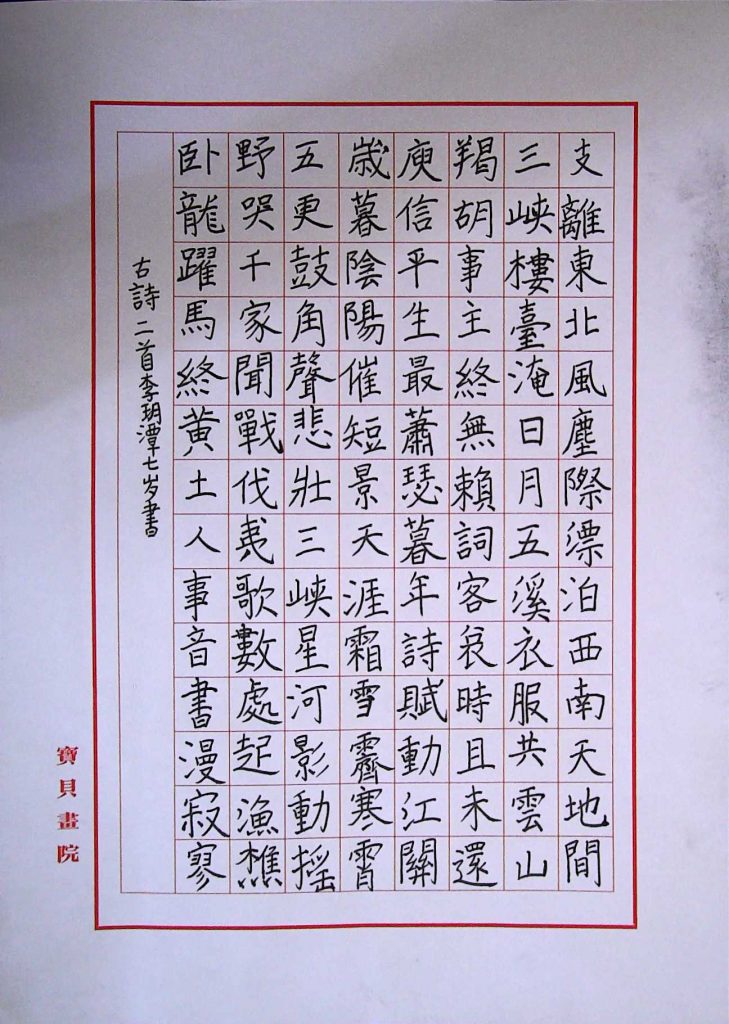 支離東北風塵際漂泊西南天地間
三峽樓臺淹日月五溪衣服共雲山
羯胡事主終無賴詞客哀時且未還
庾信平生最蕭瑟暮年詩賦動江關
歳暮陰陽催短景天涯霜雪霽寒霄
五更鼓角聲悲壯三峽星河影動搖
野哭千家聞戰伐夷歌數處起漁樵
卧龍躍馬終黄土人事音書漫寂寥
古詩二首李玥潭七岁書
寶貝畫院